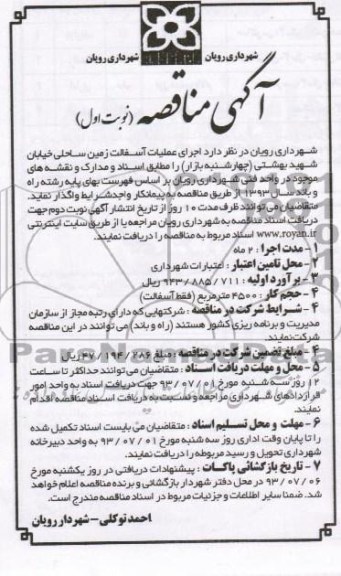 شهرداری رویان
شهرداری رویان
آگهی مناقصه (نوبت اول)
شهرداری رویان در نظر دارد اجرای عملیات آسفالت زمین ساحلی خیابان
شهید بهشتی (چهارشنبه بازار) را مطابق اسناد و مدارک و نقشه های
موجود در واحد فنی شهرداری رویان بر اساس فهرست بهای پایه رشته راه
و باند سال ۱۳۹۳ از طریق مناقصه به پیمانکار واجد شرایط واگذار نماید.
متقاضیان می توانند ظرف مدت ۱۰ روز از تاریخ انتشار آگهی نوبت دوم جهت
دریافت اسناد مناقصه به شهرداری رویان مراجعه یا از طریق سایت اینترنتی
www.royan.ir اسناد مربوط به مناقصه را دریافت نمایند.
۱ - مدت اجرا : ۲ ماه
۲ - محل تامین اعتبار : اعتبارات شهرداری
۳ - برآورد اولیه : ۹۴۳/۸۸۵/۷۱۱ ریال
۴ - حجم کار : ۴۵۰۰ مترمربع (فقط آسفالت)
۴ - شرایط شرکت در مناقصه : شرکتهایی که دارای رتبه مجاز از سازمان
مدیریت و برنامه ریزی کشور هستند (راه و باند) می توانند در این مناقصه
شرکت نمایند.
مبلغ تضمین شرکت در مناقصه : مبلغ ۴۷/۱۹۴/۲۸۶ ریال
۵ - محل و مهلت دریافت اسناد : متقاضیان می توانند حداکثر تا ساعت
۱۲ روز سه شنبه مورخ ۹۳/۰۷/۰۱ جهت دریافت اسناد به واحد امور
قراردادهای شهرداری مراجعه و نسبت به دریافت اسناد مناقصه اقدام
نمایند.
۶ - مهلت و محل تسلیم اسناد : متقاضیان می بایست اسناد تکمیل شده
را تا پایان وقت اداری روز سه شنبه مورخ ۹۳/۰۷/۰۱ به واحد دبیرخانه
شهرداری تحویل و رسید مربوطه را دریافت نمایند.
۷ - تاریخ بازگشائی پاکات : پیشنهادات دریافتی در روز یکشنبه مورخ
۹۳/۰۷/۰۶ در محل دفتر شهردار بازگشائی و برنده مناقصه اعلام خواهد
شد. ضمنا سایر اطلاعات و جزئیات مربوط در اسناد مناقصه مندرج است.
احمد توکلی - شهردار رویان